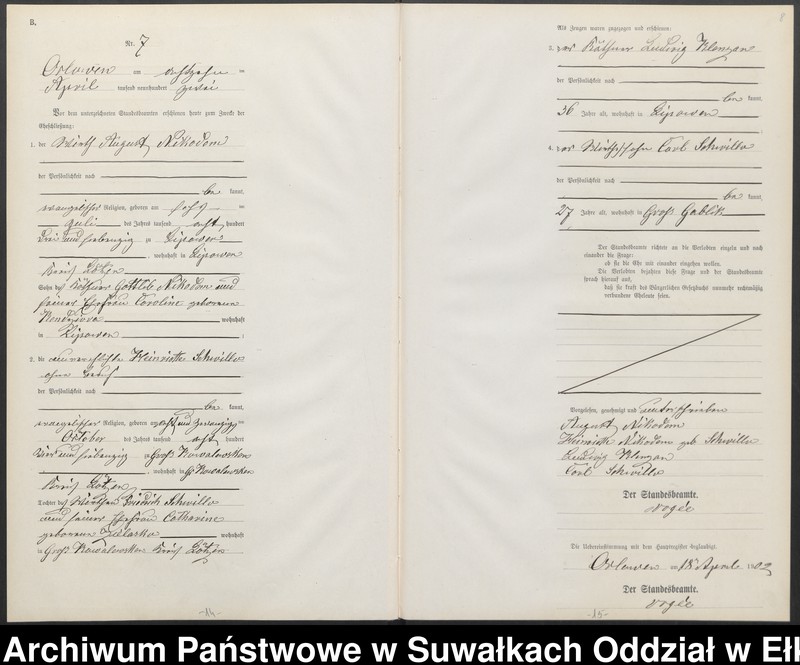 B.
Nr. 7
Orlowen am achtzehn ten
April tausend neunhundert zwei
Vor dem unterzeichneten Standesbeamten erschienen heute zum Zwecke der
Eheschließung:
1. der Wirth August Nikodem
der Persönlichkeit nach
be kannt,
evangelischer Religion, geboren am
Juli des Jahres tausend acht hundert
drei und siebenzig zu Lipowen
, wohnhaft in Lipowen
Kreis Lötzen
Sohn des Käthner Gottlieb Nikodem und
seiner Ehefrau Caroline geborenen
wohnhaft
in Lipowen
2. die unverehelichte Heinriette Schwillo
ohne Beruf
der Persönlichkeit nach
be kannt,
evangelischer Religion, geboren am acht und zwanzigsten
October des Jahres tausend acht hundert
vier und siebenzig zu Groß Kowalewsken
, wohnhaft in Gr Kowalewsken
Kreis Lötzen
Tochter des Wirthen Friedrich Schwillo
und seiner Ehefrau Catharine
geborenen wohnhaft
in Groß Kowalewsken Kreis Lötzen
-14-
8
Als Zeugen waren zugezogen und erschienen:
3. der Käthner Ludwig Klengan
der Persönlichkeit nach
be kannt,
36 Jahre alt, wohnhaft in Lipowen
4. der Wirthssohn Carl Schwillo
der Persönlichkeit nach
be kannt,
27 Jahre alt, wohnhaft in Groß Gablik
Der Standesbeamte richtete an die Verlobten einzeln und nach
einander die Frage:
ob sie die Ehe mit einander eingehen wollen.
Die Verlobten bejahten diese Frage und der Standesbeamte
sprach hierauf aus,
daß sie kraft des Bürgerlichen Gesetzbuchs nunmehr rechtmäßig
verbundene Eheleute seien.
Vorgelesen, genehmigt und unterschrieben
August Nikodem
Heinriette Nikodem geb Schwillo
Ludwig Klengan
Carl Schwillo
Der Standesbeamte.
Vogée
Die Uebereinstimmung mit dem Hauptregister beglaubigt.
Orlowen am 18 April 1902
Der Standesbeamte.
Vogée
-15-
Archiwum Państwowe w Suwałkach Oddział w Eł